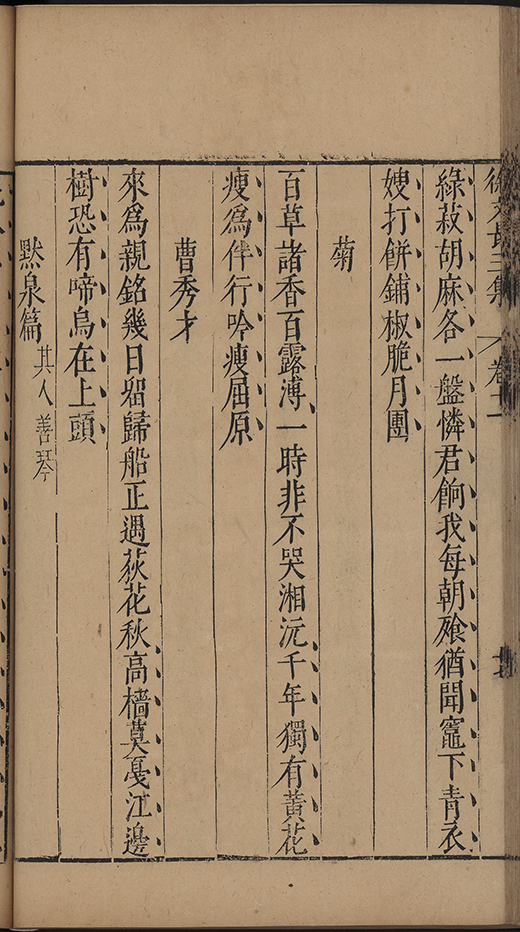 徐文長三集 卷十一
綠菽胡麻各一盤憐君餉我每朝飱猶聞竈下青衣
嫂打餅鋪椒脆月團
菊
百草諸香百露漙一時非不哭湘沅千年獨有黃花
瘦爲伴行吟瘦屈原
曹秀才
來爲親銘幾日畱歸船正遇荻花秋高檣莫戞江邊
樹恐有啼烏在上頭
默泉篇 其人善琴